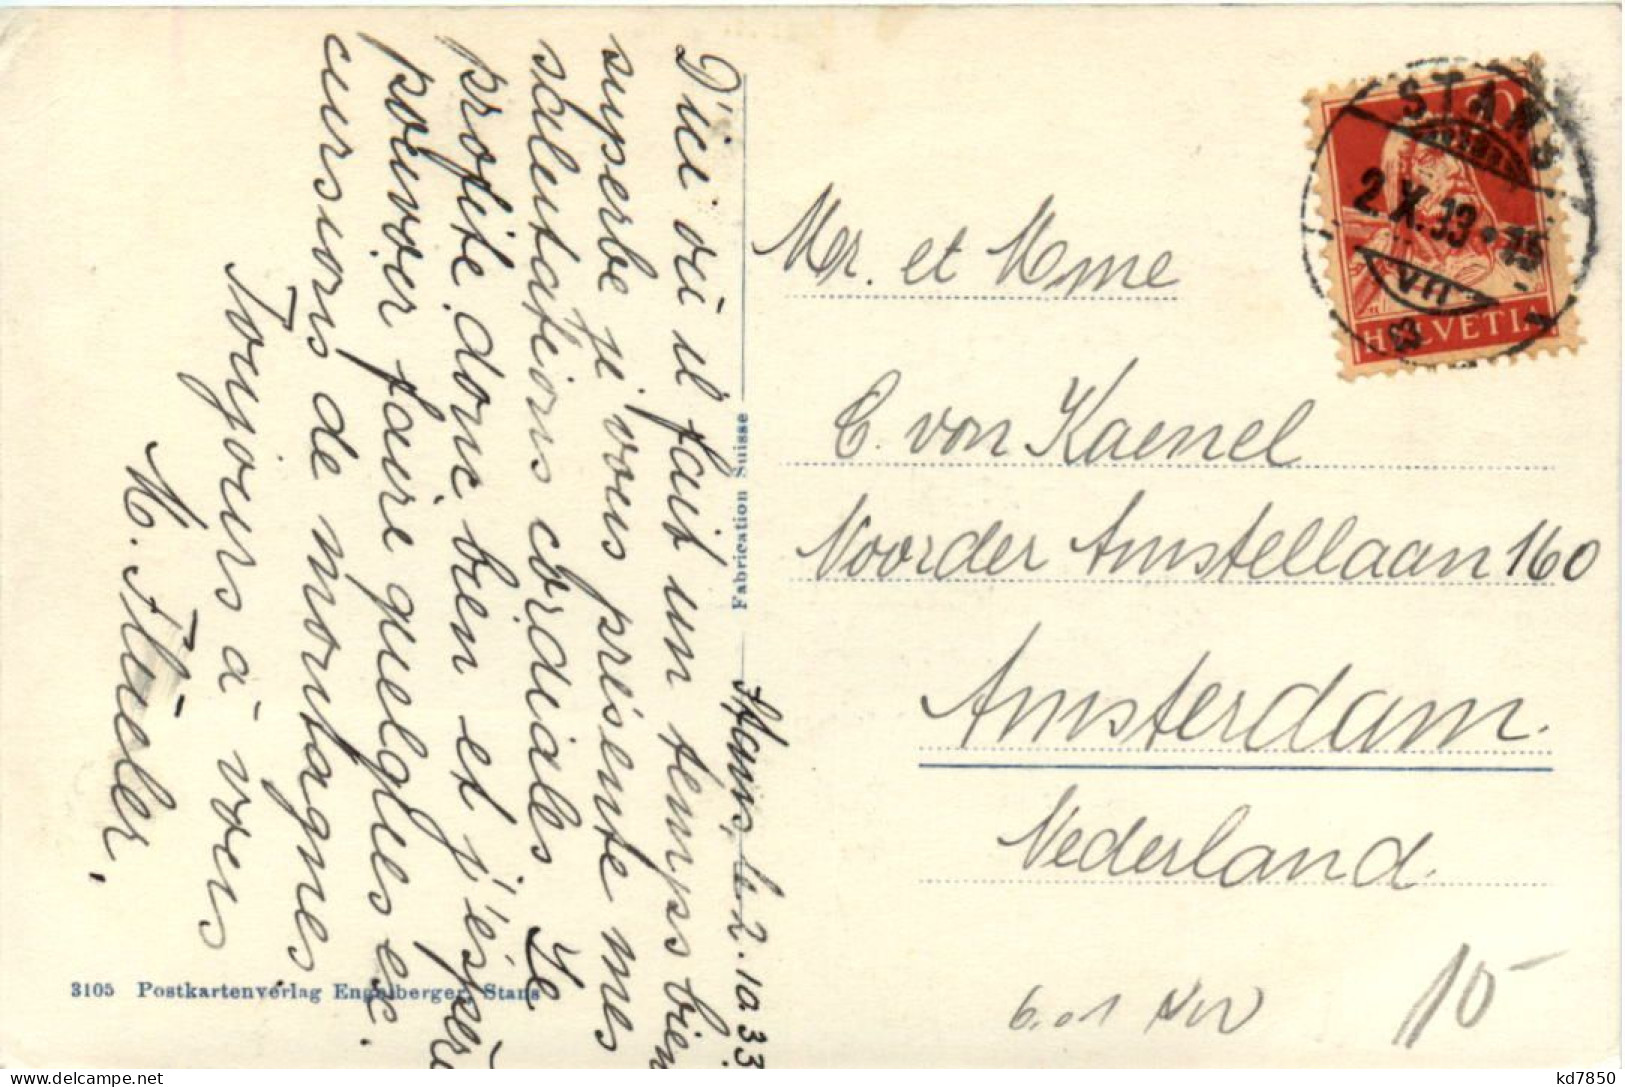 Stans, le 2.10.33
D'ici où il fait un temps bien
superbe je vous présente mes
salutations cordiales. Je
profite donc bien et j'éspère
pouvoir faire quelques ex.
cursions de montagnes
Toujours à vous
M. Flüeler.
Fabrication Suisse
3105 Postkartenverlag Engelberger, Stans
STANS
2.X.33 • 15
VII
20
HELVETIA
Mr. et Mme
C. von Kaenel
Noorder Amstellaan 160
Amsterdam.
Nederland.
6.01 NW
10-
kd7850